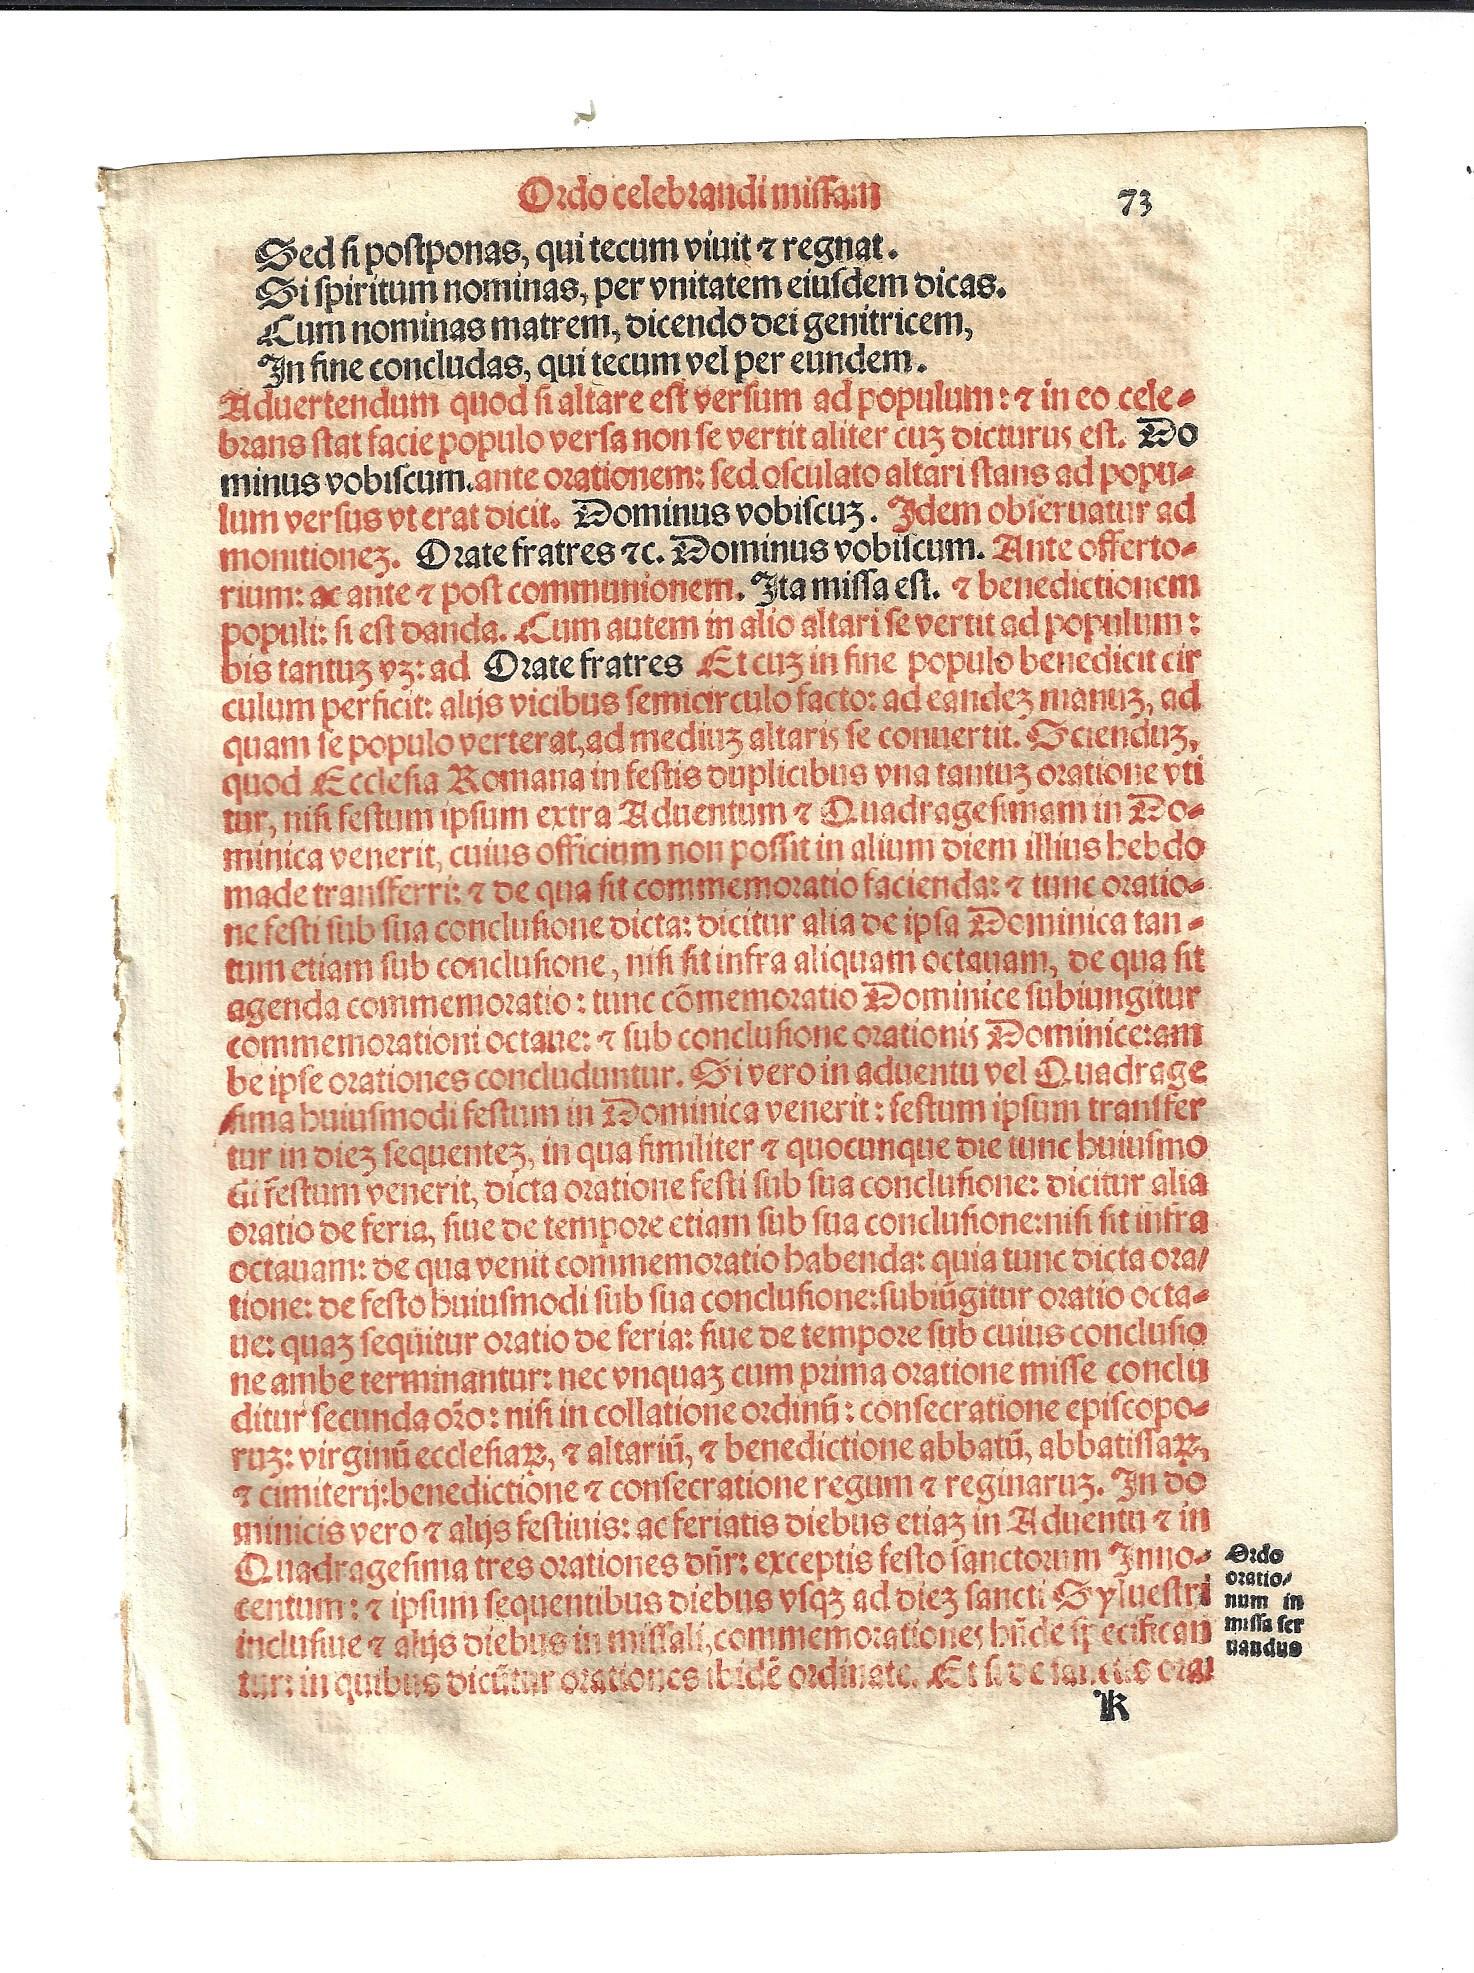 Ordo celebrandi missam
73
Sed si postponas, qui tecum viuit ⁊ regnat.
Si spiritum nominas, per vnitatem eiusdem dicas.
Cum nominas matrem, dicendo dei genitricem,
In fine concludas, qui tecum vel per eundem.
Aduertendum quod si altare est versum ad populum: ⁊ in eo cele-
brans stat facie populo versa non se vertit aliter cuꝫ dicturus est. Do
minus vobiscum. ante orationem: sed osculato altari stans ad popu-
lum versus vt erat dicit. Dominus vobiscuꝫ. Idem obseruatur ad
monitioneꝫ. Orate fratres ⁊c. Dominus vobiscum. Ante offerto-
rium: ac ante ⁊ post communionem. Ita missa est. ⁊ benedictionem
populi: si est danda. Cum autem in alio altari se vertit ad populum:
bis tantuꝫ vꝫ: ad Orate fratres Et cuꝫ in fine populo benedicit cir
culum perficit: alijs vicibus semicirculo facto: ad eandeꝫ manuꝫ, ad
quam se populo verterat, ad mediuꝫ altaris se conuertit. Scienduꝫ,
quod Ecclesia Romana in festis duplicibus vna tantuꝫ oratione vti
tur, nisi festum ipsum extra Aduentum ⁊ Quadragesimam in Do-
minica venerit, cuius officium non possit in alium diem illius hebdo
made transferri: ⁊ de qua sit commemoratio facienda: ⁊ tunc oratio-
ne festi sub sua conclusione dicta: dicitur alia de ipsa Dominica tan-
tum etiam sub conclusione, nisi sit infra aliquam octauam, de qua sit
agenda commemoratio: tunc cōmemoratio Dominice subiungitur
commemorationi octaue: ⁊ sub conclusione orationis Dominice: am
be ipse orationes concluduntur. Si vero in aduentu vel Quadrage
sima huiusmodi festum in Dominica venerit: festum ipsum transfer
tur in dieꝫ sequenteꝫ, in qua similiter ⁊ quocunque die tunc huiusmo
di festum venerit, dicta oratione festi sub sua conclusione: dicitur alia
oratio de feria, siue de tempore etiam sub sua conclusione: nisi sit infra
octauam: de qua venit commemoratio habenda: quia tunc dicta ora/
tione: de festo huiusmodi sub sua conclusione: subiūgitur oratio octa-
ue: quaꝫ sequitur oratio de feria: siue de tempore sub cuius conclusio
ne ambe terminantur: nec vnquaꝫ cum prima oratione misse conclu
ditur secunda orō: nisi in collatione ordinū: consecratione episcopo-
ruꝫ: virginū ecclesiaꝝ, ⁊ altariū, ⁊ benedictione abbatū, abbatissaꝝ,
⁊ cimiterij: benedictione ⁊ consecratione regum ⁊ reginaruꝫ. In do
minicis vero ⁊ alijs festiuis: ac feriatis diebus etiaꝫ in Aduentu ⁊ in
Quadragesima tres orationes dn̄r: exceptis festo sanctorum Inno-
centum: ⁊ ipsum sequentibus diebus vsqꝫ ad dieꝫ sancti Syluestri
inclusiue ⁊ alijs diebus in missali, commemorationes hn̄de specifican
tur: in quibus dicūtur orationes ibidē ordinate. Et si de sanctis orat
Ordo
oratio/
num in
missa ser
uandus
K